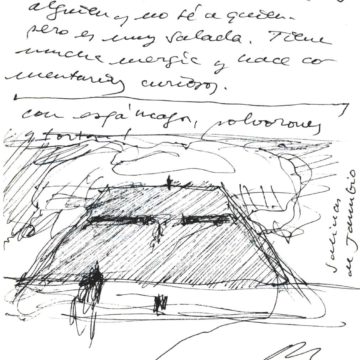 alguien y no sé a quien.
pero es muy salada. Tiene
mucha energía y hace co
mentarios curiosos.
con espá polvorones
y
Salinas
de Janubio